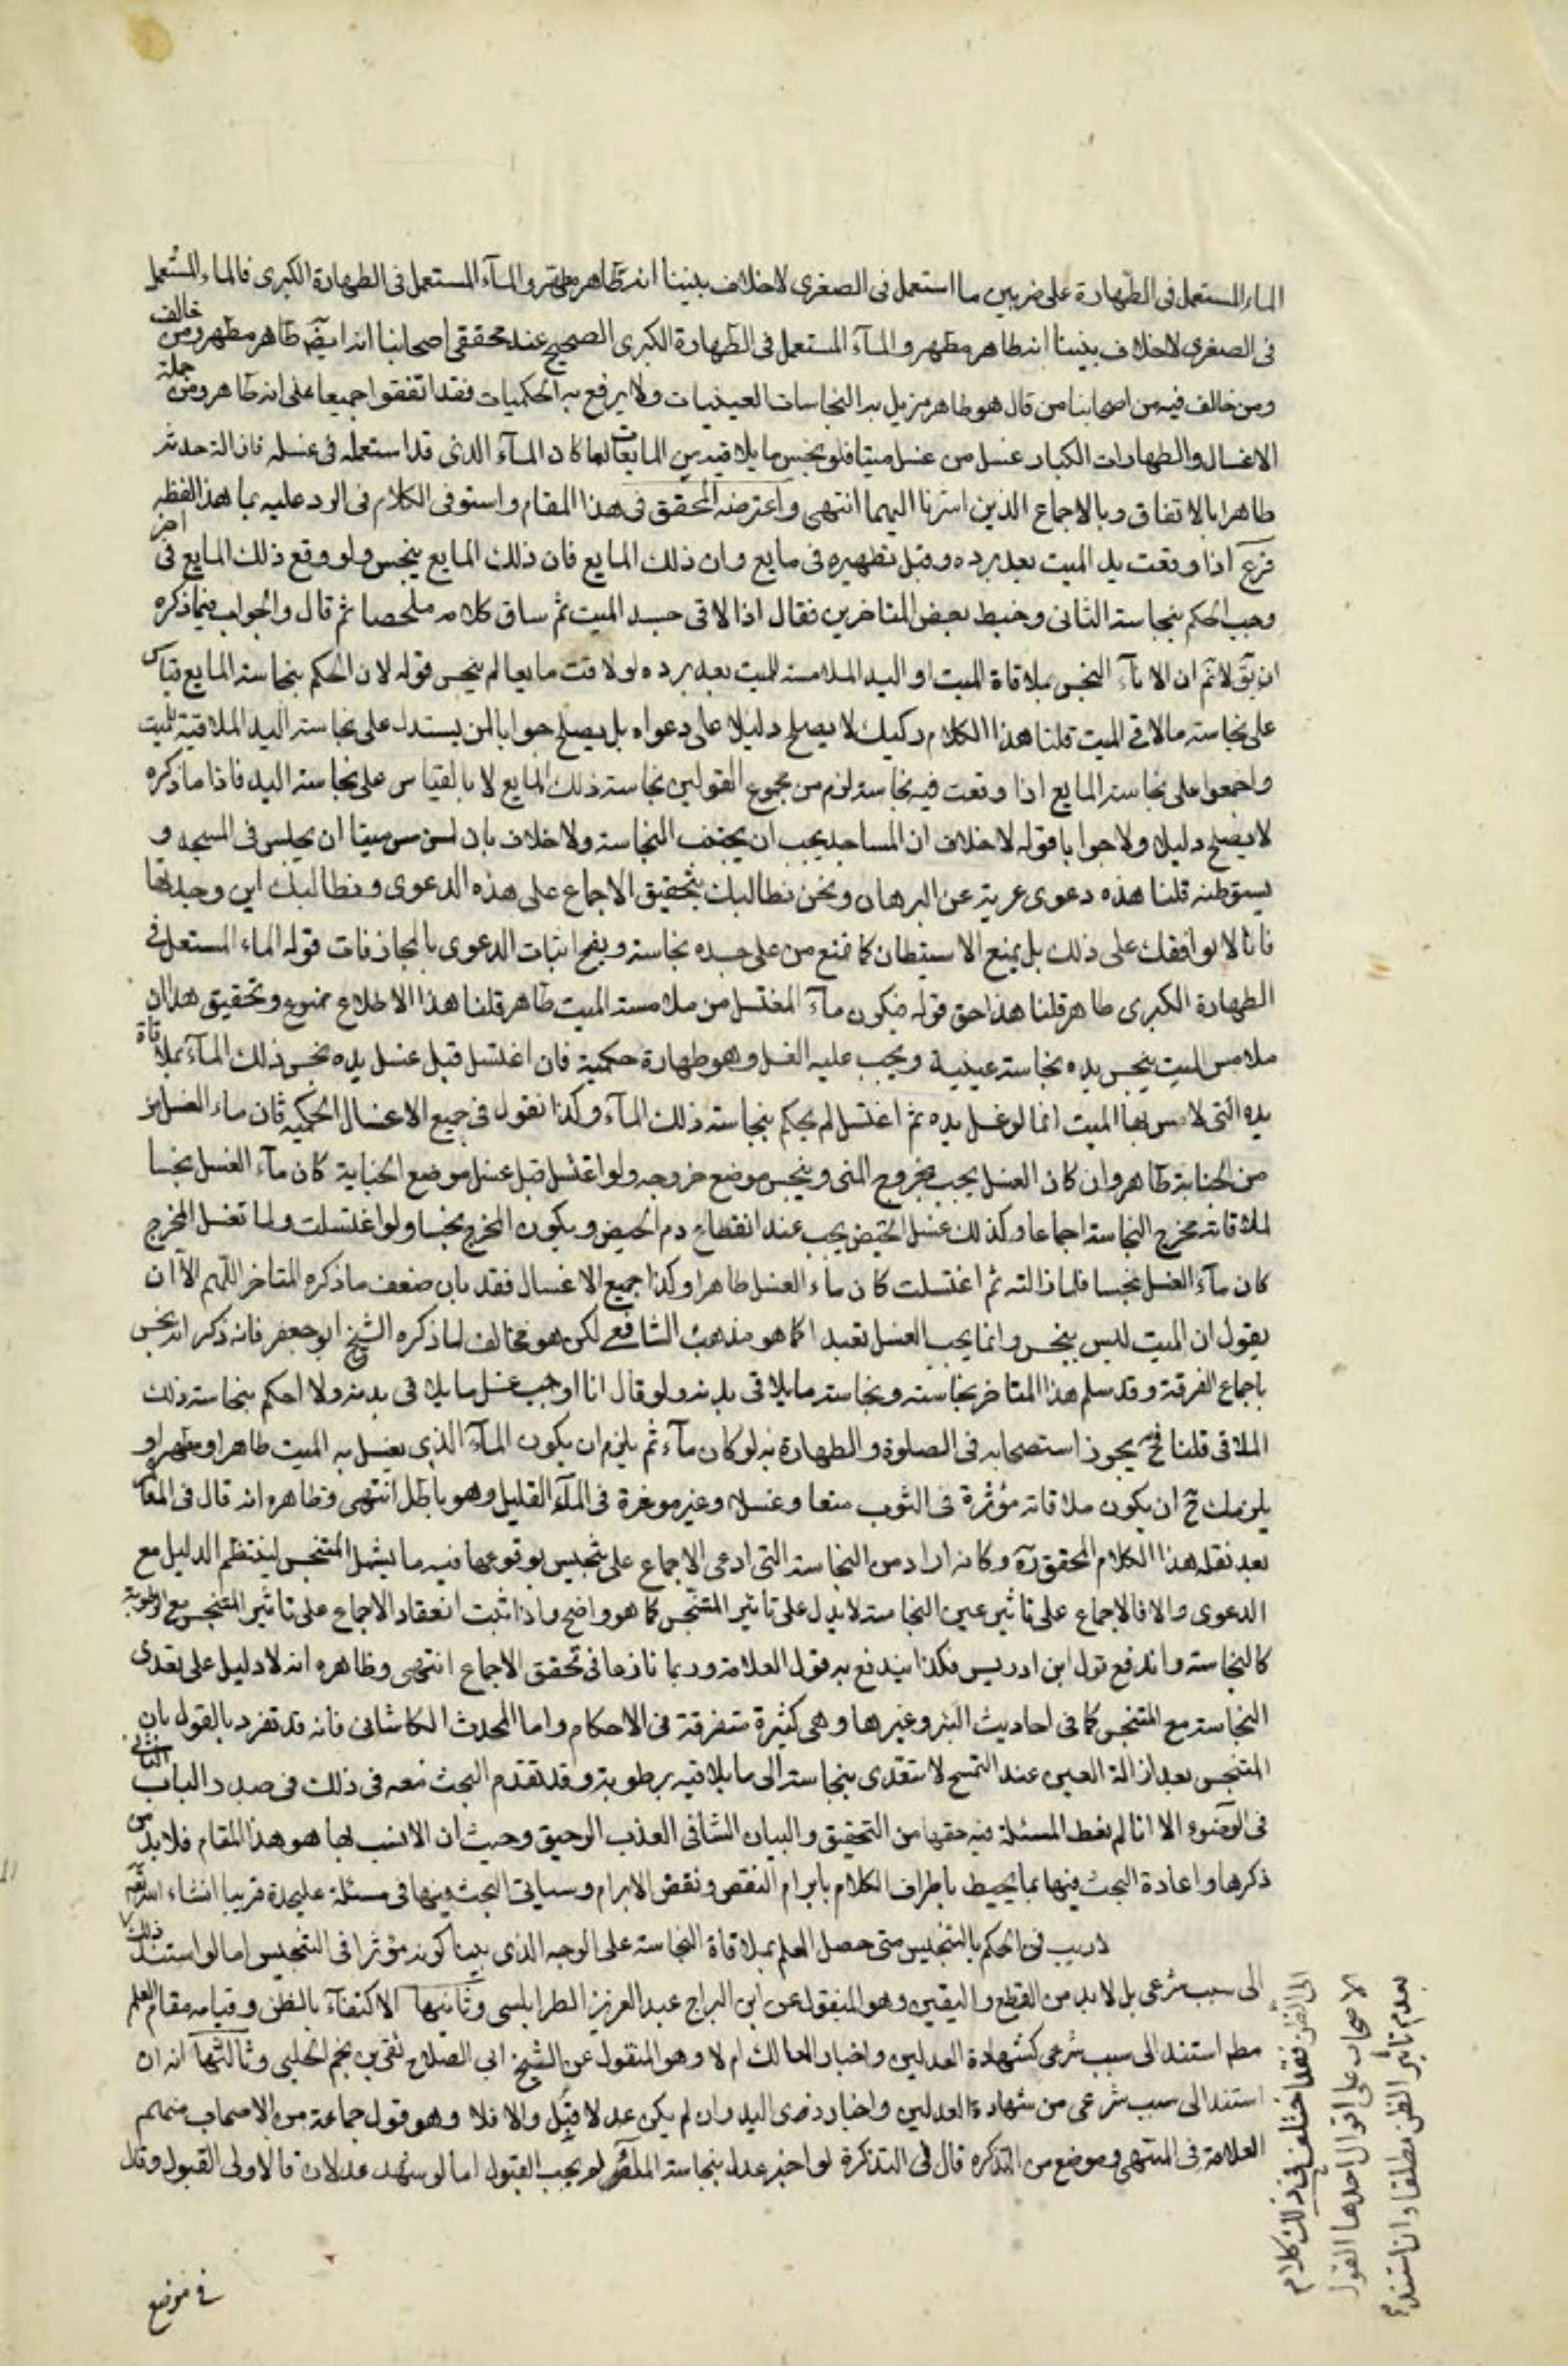 الماء المستعمل فى الطهارة على ضربين ما استعمل فى الصغرى لاخلاف بيننا انه طاهر مطهر والمآء المستعمل فى الطهارة الكبرى فالماء المستعمل
فى الصغرى لاخلاف بيننا انه طاهر مطهر والمآء المستعمل فى الطهارة الكبرى الصحيح عند محققى اصحابنا انه ايضه طاهر مطهر ومن خالف
ومن خالف فيه من اصحابنا من قال هو طاهر مزيل به النجاسات العينيات ولا يرفع به الحكميات فقد اتفقوا جميعا على انه طاهر ومن جملة
الاغسال والطهارات الكبار غسل من غسل ميتا فلو نجس ما يلاقيه من المايعات لما كان المآء الذى قد استعمله فى غسله فازالة حدثه
طاهرا بالاتفاق وبالاجماع الذين اشرنا اليهما انتهى واعترضه المحقق فى هذا المقام واستوفى الكلام فى الرد عليه بما هذا لفظه
فرع اذا وقعت يد الميت بعد برده وقبل تطهيره فى مايع وان ذلك المايع فان ذلك المايع ينجس ولو وقع ذلك المايع فى اخر
وجب الحكم بنجاسة الثانى وخبط بعض المتاخرين فقال اذا لاقى جسد الميت ثم ساق كلامه ملخصا ثم قال والجواب فيما ذكره
ان يق لا نم ان الانآء النجس بملاقاة الميت او اليد الملامسة للميت بعد برده لو لاقت مايعا لم ينجس قوله لان الحكم بنجاسة المايع قياس
على نجاسة ما لاقى الميت قلنا هذا الكلام ركيك لا يصلح دليلا على دعواه بل يصلح جوابا لمن يستدل على نجاسة اليد الملاقية للميت
واجمعوا على نجاسة المايع اذا وقعت فيه نجاسة لزم من مجموع القولين نجاسة ذلك المايع لا بالقياس على نجاسة اليد فاذا ما ذكره
لا يصلح دليلا ولا جوابا قوله لا خلاف ان المساجد يجب ان يجنب النجاسة ولا خلاف بان لمن مس ميتا ان يجلس فى المسجد و
يستوطنه قلنا هذه دعوى عرية عن البرهان ونحن نطالبك بتحقيق الاجماع على هذه الدعوى ونطالبك اين وجدتها
فانا لا نوافقك على ذلك بل يمنع الاستيطان كما تمنع من على جسده نجاسة ويقبح اثبات الدعوى بالمجازفات قوله الماء المستعمل فى
الطهارة الكبرى طاهر قلنا هذا حق قوله فيكون مآء المغتسل من ملامسة الميت طاهر قلنا هذا الاطلاع ممنوع وتحقيق هذا ان
ملامس الميت ينجس يده نجاسة عينية ويجب عليه الغسل وهو طهارة حكمية فان اغتسل قبل غسل يده نجس ذلك المآء بملاقاة
يده التى لامس بها الميت اما لو غسل يده ثم اغتسل لم يحكم بنجاسة ذلك المآء وكذا نقول فى جميع الاغسال الحكمية فان ماء الغسل من
من الجنابة طاهر وان كان الغسل يجب بخروج المنى وينجس موضع خروجه ولو اغتسل قبل غسل موضع الجنابة كان مآء الغسل نجسا
لملاقاته مخرج النجاسة اجماعا وكذلك غسل الحيض يجب عند انقطاع دم الحيض ويكون المخرج نجسا ولو اغتسلت ولما تغسل المخرج
كان مآء الغسل نجسا فلما ازالته ثم اغتسلت كان ماء الغسل طاهرا وكذا جميع الاغسال فقد بان ضعف ما ذكره المتاخر اللهم الا ان
يقول ان الميت ليس بنجس وانما يجب الغسل تعبدا كما هو مذهب الشافعى لكن هو مخالف لما ذكره الشيخ ابو جعفر فانه ذكر انه نجس
باجماع الفرقة وقد سلم هذا المتاخر نجاسته ونجاسة ما يلاقى بدنه ولو قال انا اوجب غسل ما يلاقى بدنه ولا احكم بنجاسة ذلك
الملاقى قلنا فح يجوز استصحابه فى الصلوة والطهارة به لو كان مآء ثم يلزم ان يكون المآء الذى يغسل به الميت طاهرا ومطهرا و
يلزمك ح ان يكون ملاقاته مؤثرة فى الثوب منعا وغسلا وغير موثرة فى المآء القليل وهو باطل انتهى وظاهره انه قال فى المعا
بعد نقله هذا الكلام المحقق ره وكانه اراد من النجاسة التى ادعى الاجماع على تنجيس بوقوعها فيه ما يشمل المتنجس لينتظم الدليل مع
الدعوى والا فالاجماع على تاثير عين النجاسة لا يدل على تاثير المتنجس كما هو واضح واذا ثبت انعقاد الاجماع على تاثير المتنجس مع الرطوبة
كالنجاسة واندفع قول ابن ادريس فكذا يندفع به قول العلامة وربما نازعا فى تحقق الاجماع انتهى وظاهره انه لا دليل على تعدى
النجاسة مع المتنجس كما فى احاديث البئر وغيرها وهى كثيرة متفرقة فى الاحكام واما المحدث الكاشانى فانه قد تفرد بالقول بان
المتنجس بعد ازالة العين عند التمسح لا تتعدى بنجاسة الى ما يلاقيه برطوبة وقد تقدم البحث معه فى ذلك فى صدد الباب الثانى
فى الوضوء الا انا لم نعط المسئلة فيه حقها من التحقيق والبيان الشافى العذب الرحيق وحيث ان الانسب لها هو هذا المقام فلابد من
ذكرها واعادة البحث فيها بما يحيط باطراف الكلام بابرام النقض ونقض الابرام وسياتى البحث فيها فى مسئلة عليحدة قريبا انشاء الله تعم
لا ريب فى الحكم بالتنجيس متى حصل العلم بملاقاة النجاسة على الوجه الذى بينا كونه مؤثرا فى التنجيس اما لو استند ذلك
الى الظن فقد اختلف فى ذلك كلام
الاصحاب على اقوال احدها القول
بعدم تأثير الظن مطلقا وان استند
الى سبب شرعى بل لابد من القطع واليقين وهو المنقول عن ابن البراج عبد العزيز الطرابلسى وثانيها الاكتفآء بالظن وقيامه مقام العلم
مطم استند الى سبب شرعى كشهادة العدلين واخبار المالك ام لا وهو المنقول عن الشيخ ابى الصلاح تقى بن نجم الحلبى وثالثها انه ان
استند الى سبب شرعى من شهادة العدلين واخبار ذى اليد وان لم يكن عدلا قبل والا فلا وهو قول جماعة من الاصحاب منهم
العلامة فى المنتهى وموضع من التذكره قال فى التذكرة لو اخبر عدل بنجاسة المآء لم يجب القبول اما لو شهد عدلان فالاولى القبول وقال
فى موضع